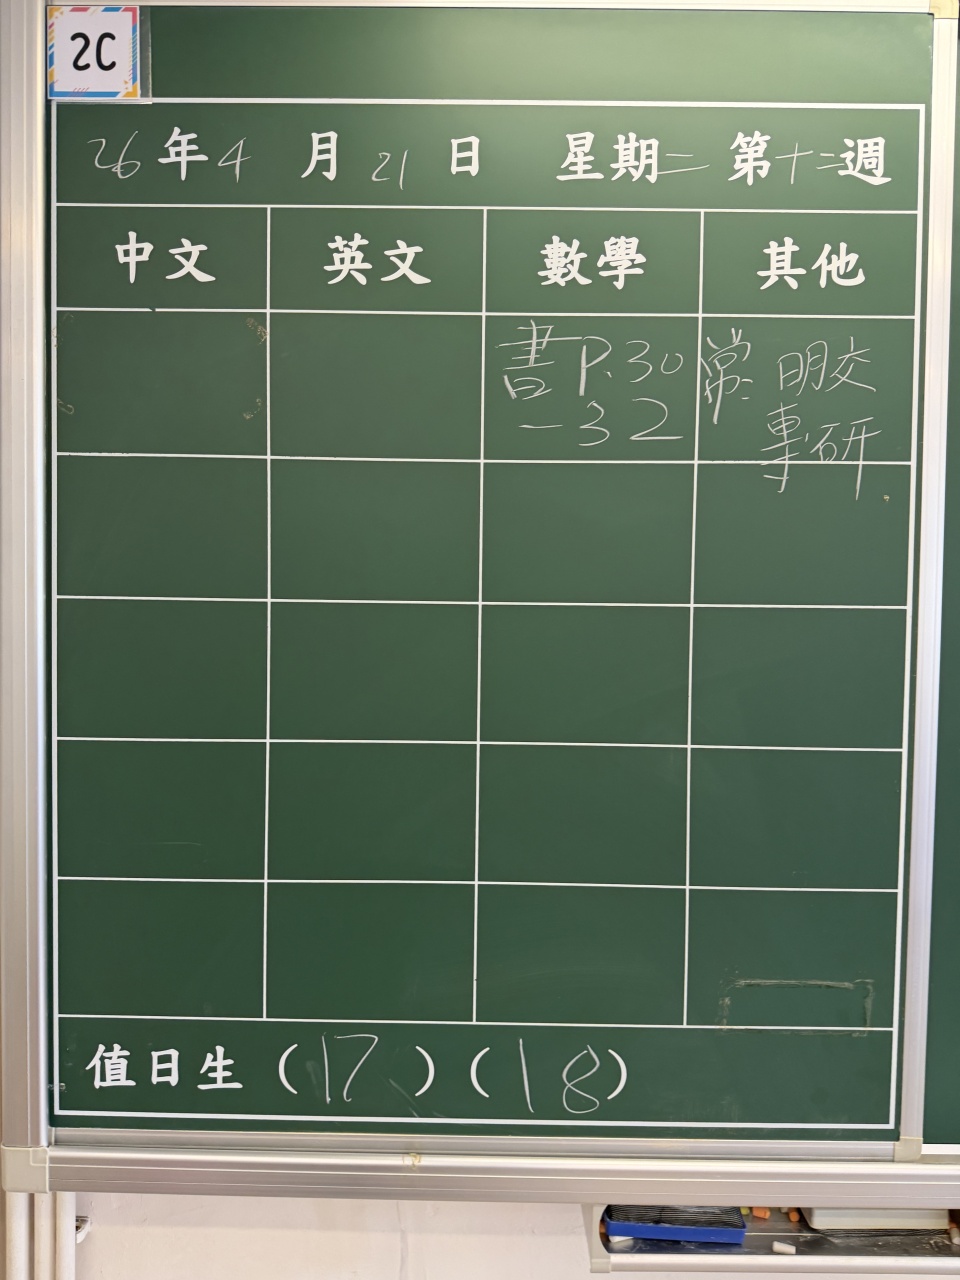 2C
26年4月21日 星期二 第十二週
中文 英文 數學 其他
書P.30 常: 明交
-32 專研
值日生(17)(18)